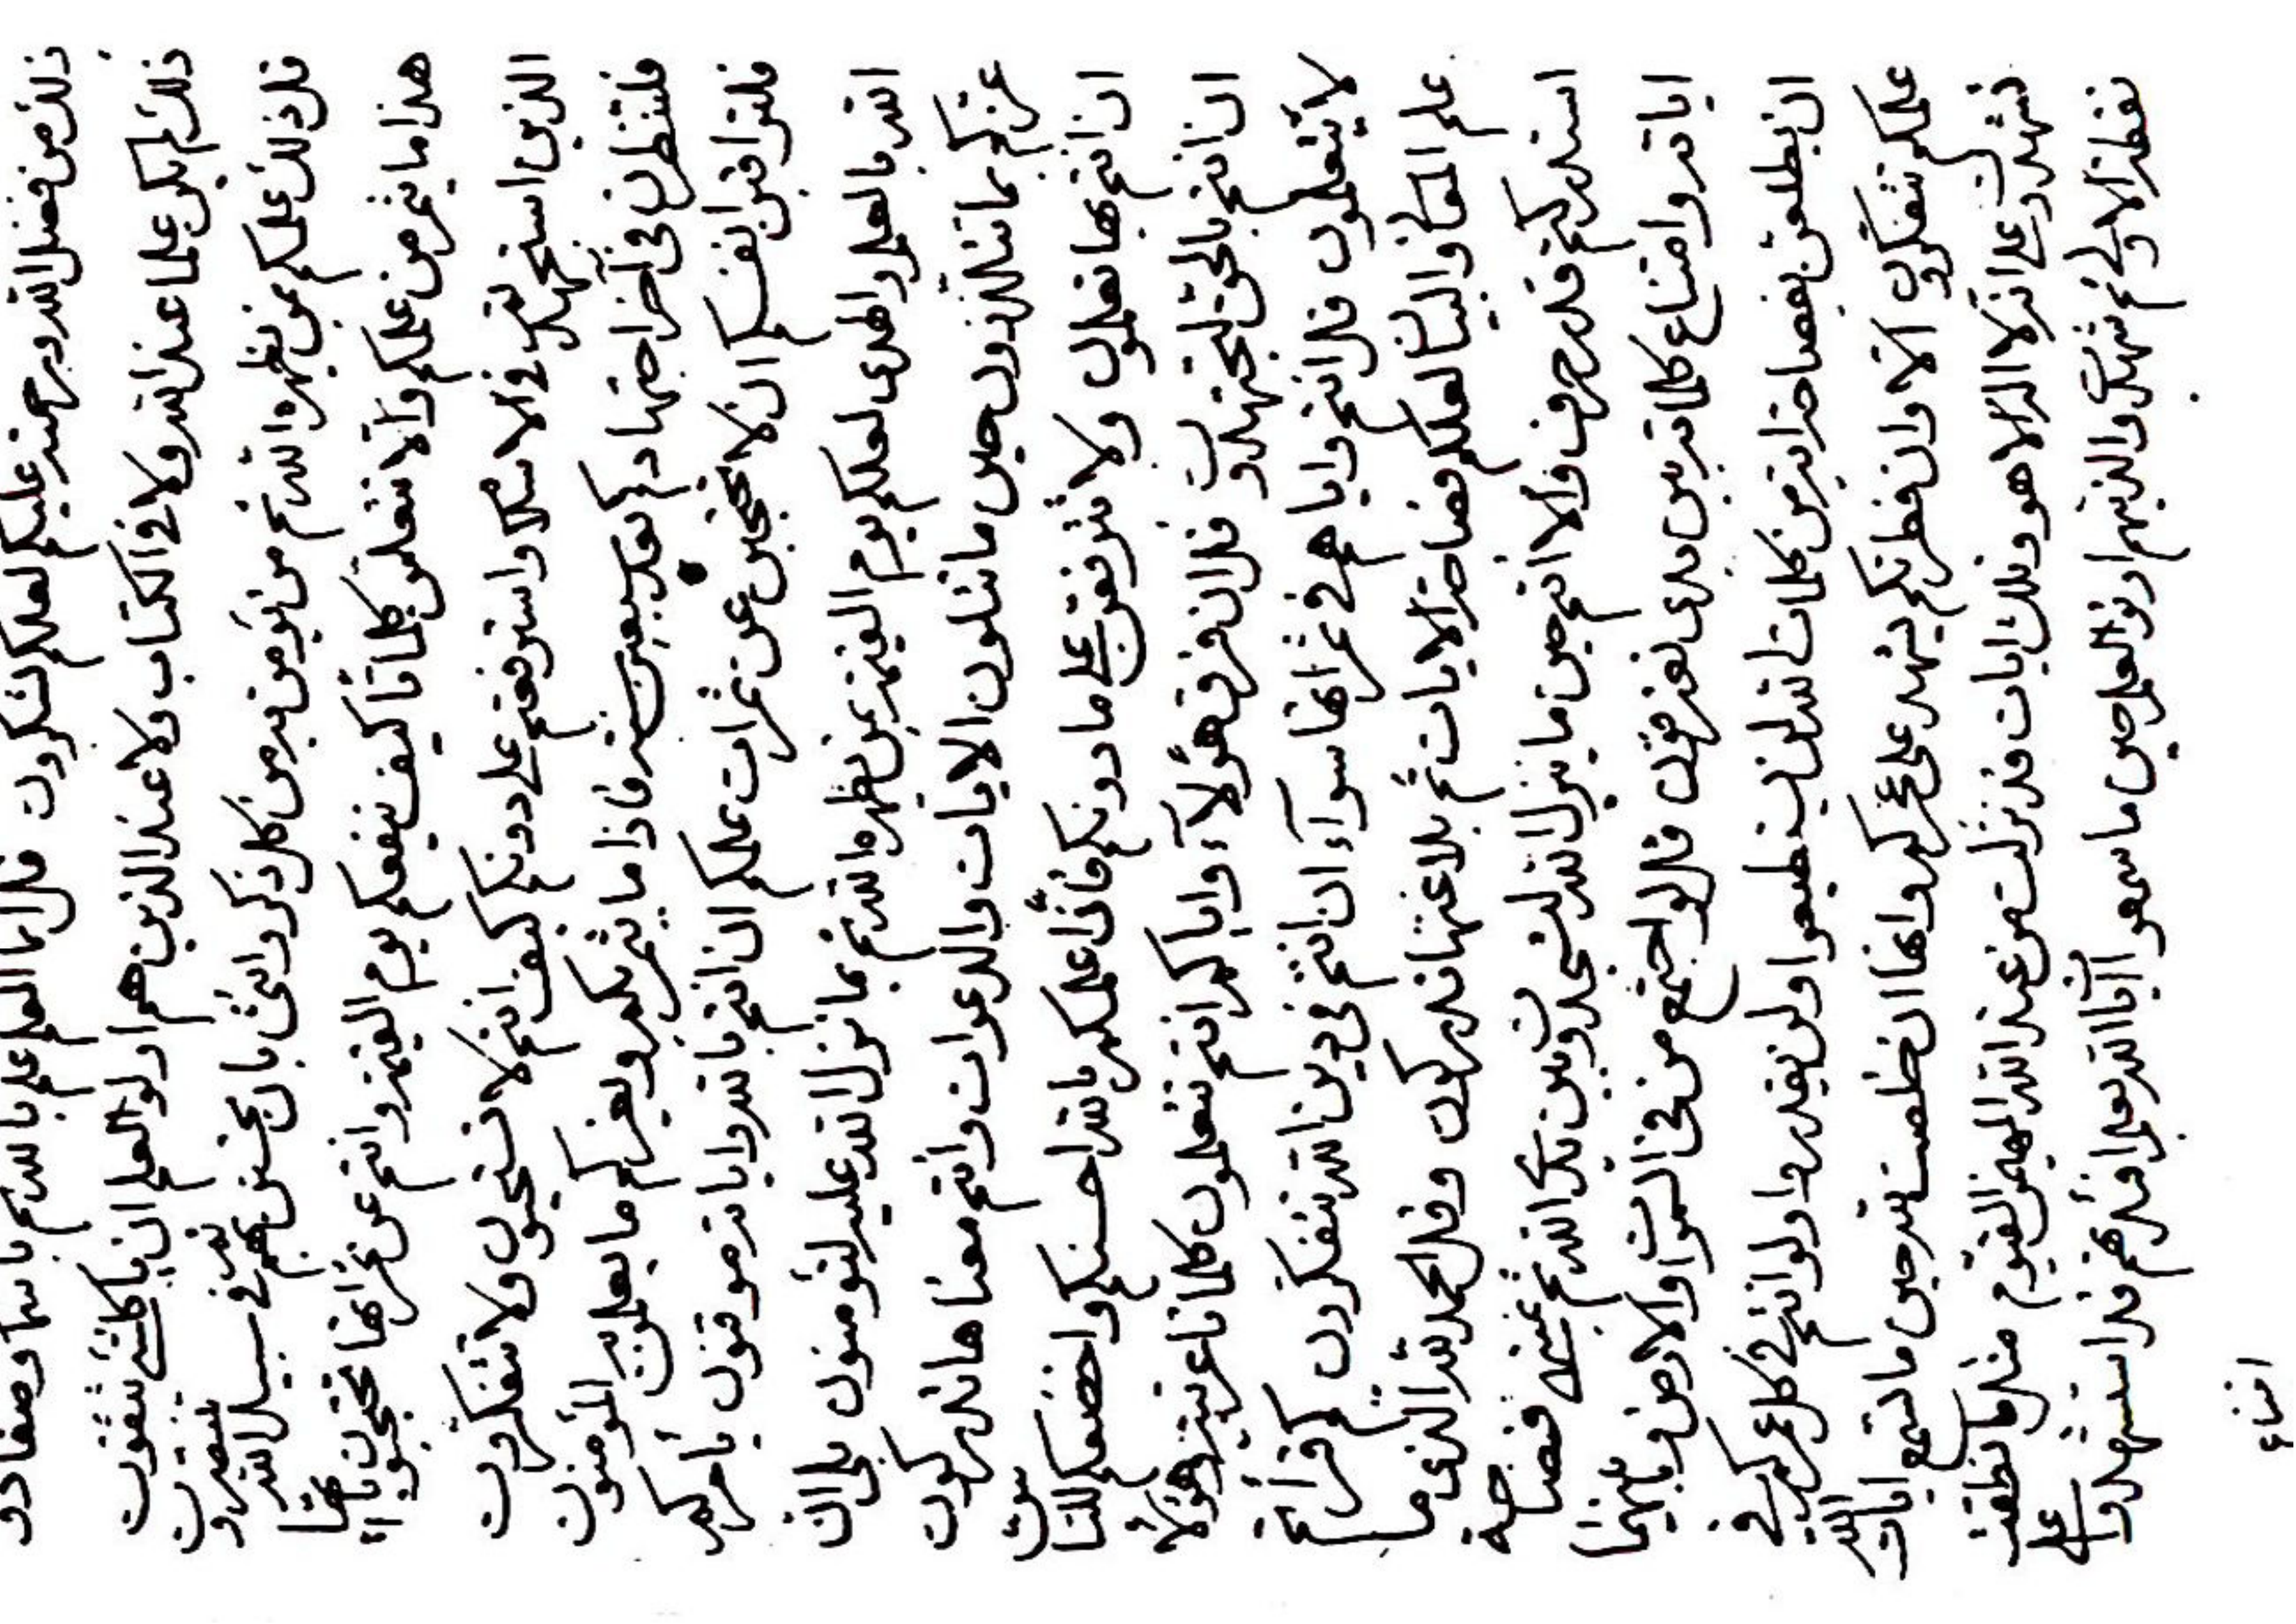 ذلك من فضل الله ورحمته عليكم لعلكم تشكرون قل انما العلم علم بالله ثم باسما وصفا دو
ذلك لم يكن علما عند الله ولا في الكتاب ولا عند الذين هم اولو العلم ان يا كلشئ تتقون
قل ذلك علمكم بمن يظهره الله ثم من يؤمن به من كل ذكر وانثى بان يحسن بهم في سبيل الله ينصرون
هذا ما يثمر من علمكم والا تتعلمن كلماتا كيف ينفعكم يوم القيمة وانتم عن ثمراتها تحتجبون
الذين استجهدتم في الاسلام واسترفعتم على دونكم كيف انتم لا تستحيون ولا تتفكرون
فلتنظرن في آخر اجتهادكم بعد سبعين سنة فاذا ما يثمر بكم ويعزكم ما يعلمون المؤمنون
فلتراقبن انفسكم ان لا تحتجبن عن ثمرات علمكم ان انتم بالله واياته موقنون
الله بالعلم والهدى لعلكم يوم القيمة بمن يظهره الله ثم بما نزل الله عليه لتؤمنون بلى ان
عزكم بما تتلذذون حين ما تتلون الايات والدعوات وانتم معناها تدركون
ان انتم بها تعملون ولا تترفعن على ما دونكم فان اعلمكم بالله احسنكم واخضعكم للناس
ان انتم بالحق لتجتهدون قل ان فرق هؤلاء واياكم انتم تتعلمون كلماتا عربية وهؤلاء
لا يتعلمون قل انتم واياهم في ثمراتها سواء ان انتم في دين الله تتفكرون كم قرأتم
علم المعاني والبيان لعلكم فصاحة الايات ثم بلاغتها تدركون وقل الحمد لله الذي ما
استدركتم قدر حرف والا انتم حين ما ينزل الله لتسجدون بين يدي الله ثم فصاحة
اياته وامتناع كلماته بين يدي تعزرون قل لو اجتمع من في السموات والارض وما بينهما
ان يطلعن بفصاحة اية من كلمات الله لن يستطيعوا ولن يقدروا ولو انتم في كل عمركم في
علمكم تتفكرون الا وان فطرتكم يشهد على عجزكم وانها ان خلصت تدرك حين ما تسمع ايات الله
تشهدون على انه لا اله الا هو وتلك ايات قد نزلت من عند الله المهيمن القيوم مثل ما نطقت
نفطة الاولى ثم شهدت والذينهم اوتوا العلم حين ما سمعوا ايات الله بعلم افئدتهم قد استشهدوا على
امتناع